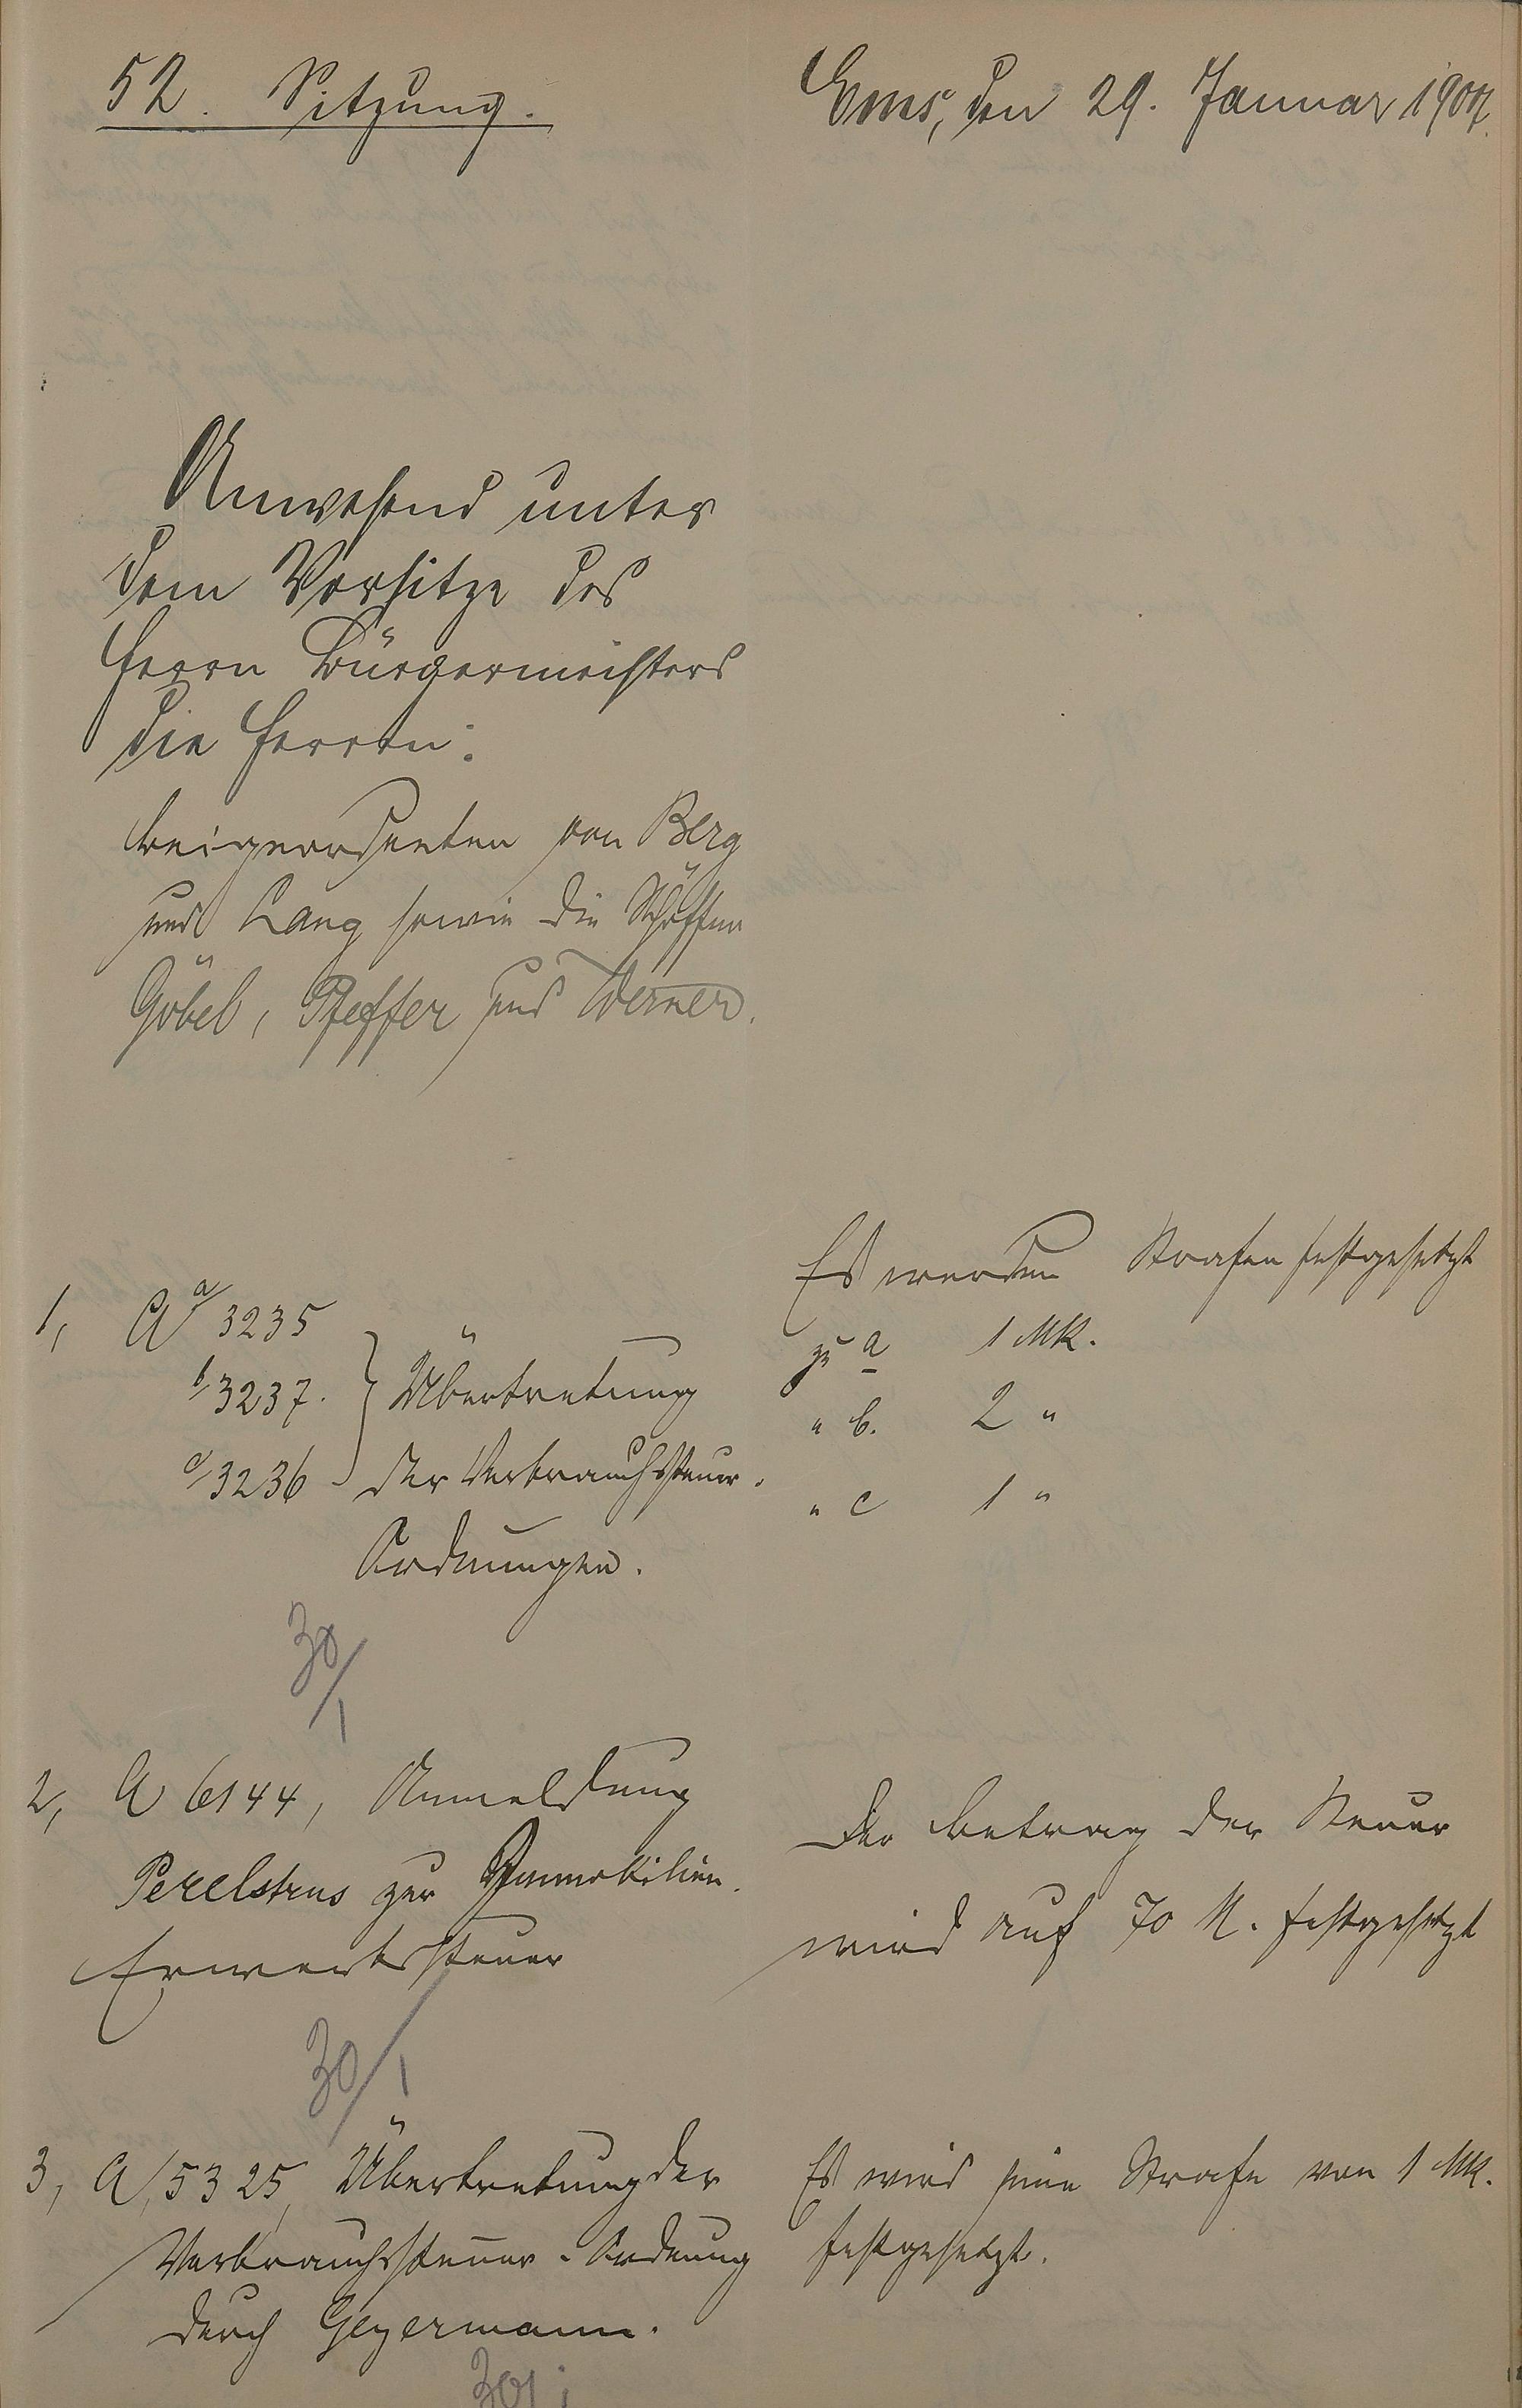 52. Sitzung.
Ems, den 29. Januar 1907.
Anwesend unter
dem Vorsitze des
Herrn Bürgermeisters
die Herren:
Beigeordneten von Berg
und Lang sowie die Schöffen
Göbel, Pfeffer und Werner.
1, A a/ 3235
b/ 3237.
c/ 3236
Übertretung
der Verbrauchssteuer-
Ordnungen.
Es werden Strafen festgesetzt
zu a 1 Mk.
" b. 2 "
" c 1 "
30/1
2, A 6144, Anmeldung
Perelstrus zur Immobilien-
Erwerbssteuer
Der Betrag der Steuer
wird auf 70 M. festgesetzt
30/1
3, A, 5325, Übertretung der
Verbrauchssteuer-Ordnung
durch Geyermann.
Es wird eine Strafe von 1 Mk.
festgesetzt.